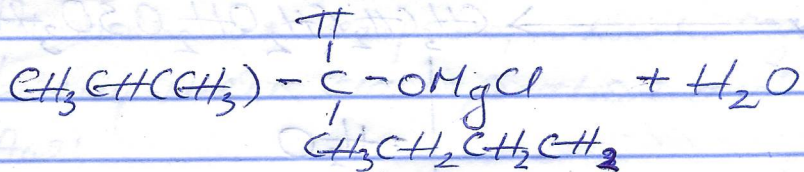 H
CH₃CH(CH₃) - C - OMgCl + H₂O
CH₃CH₂CH₂CH₂